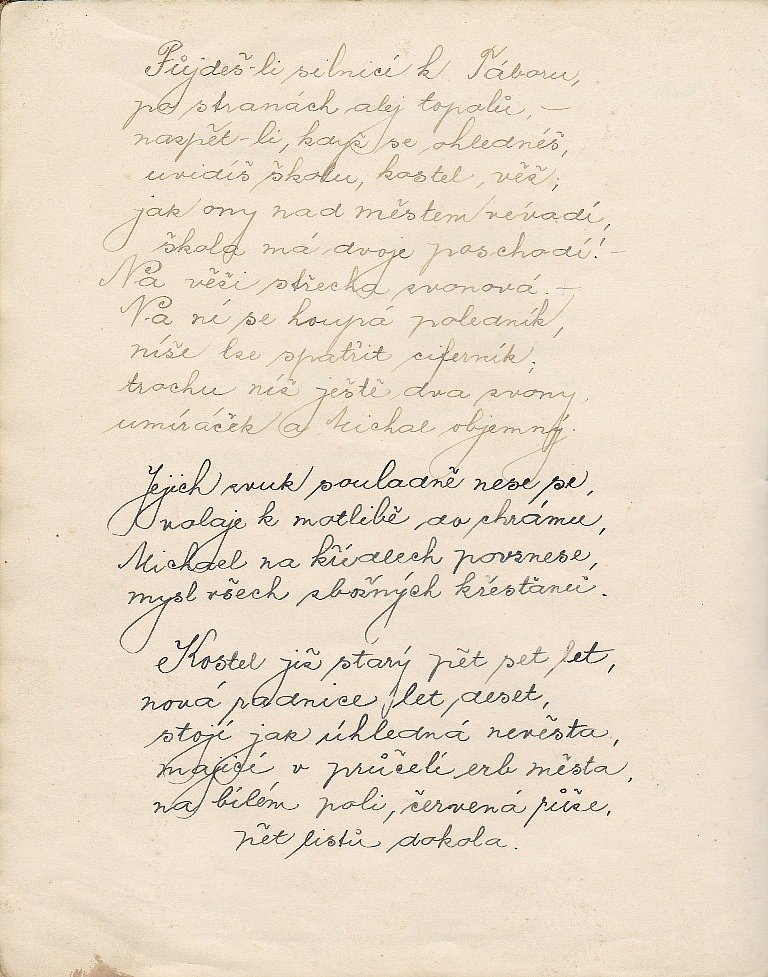 Půjdeš-li silnicí k Táboru,
po stranách alej topolů, –
nazpět-li, když se ohlednéš,
uvidíš školu, kostel, věž;
jak ony nad městem vévadí,
škola má dvoje poschodí! –
Na věži střecha zvonová. –
Na ní se houpá poledník,
níše lze spatřit ciferník;
trochu níž ještě dva zvony,
umíráček a Michal objemný.
Jejich zvuk souladně nese se,
volaje k motlibě do chrámu,
Michael na křídlech povznese,
mysl všech zbožných křesťanů.
Kostel již starý pět set let,
nová radnice let deset,
stojí jak úhledná nevěsta,
majicí v průčelí erb města,
na bílém poli, červená růže,
pět listů dokola.